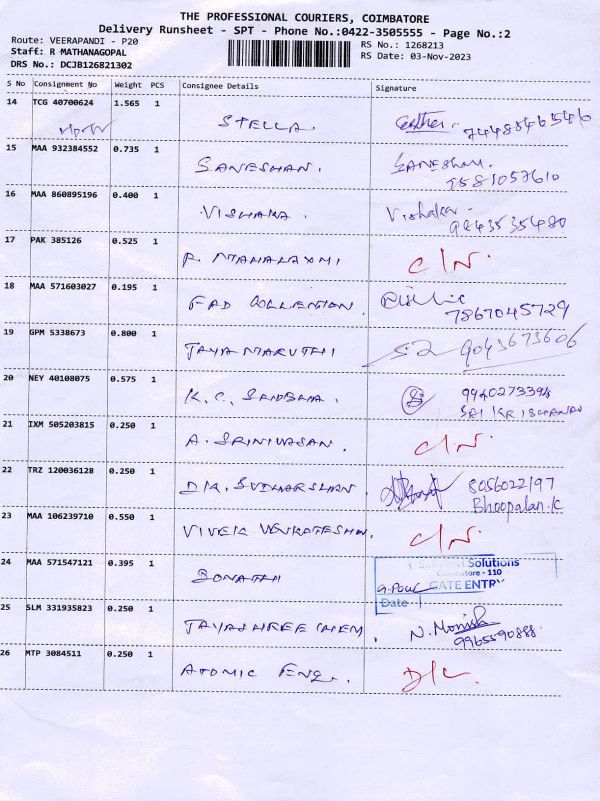 THE PROFESSIONAL COURIERS, COIMBATORE
Delivery Runsheet - SPT - Phone No.:0422-3505555 - Page No.:2
Route: VEERAPANDI - P20
RS No.: 1268213
Staff: R MATHANAGOPAL
RS Date: 03-Nov-2023
DRS No.: DCJB126821302
S No Consignment No Weight PCS Consignee Details Signature
14 TCG 40700624 1.565 1
STELLA. 7448546546
15 MAA 932384552 0.735 1
GANESHAN. GANESHAN.
9581057610
16 MAA 860895196 0.400 1
VISHAKA. Vishaka.
9843535480
17 PAK 385126 0.525 1
P. MAHALAXMI C/N.
18 MAA 571603027 0.195 1
FAD COLLECTION.
7867045729
19 GPM 5338673 0.800 1
JAYA MARUTHI 9043673606
20 NEY 40108075 0.575 1
K.C. SRIDBHA. 9940273394
SAI KRISHANAN
21 IXM 505203815 0.250 1
A. SRINIVASAN. C/N.
22 TRZ 120036128 0.250 1
D.K. SUDHARSHAN 8056022197
Bhoopalan.K
23 MAA 106239710 0.550 1
VIVEK VENKATESHAN. C/N.
24 MAA 571547121 0.395 1
Solutions
Coimbatore - 110
SONATHI GATE ENTRY
Date
25 SLM 331935823 0.250 1
JAYASHREE CHEM. N. Monish
9965590888.
26 MTP 3084511 0.250 1
ATOMIC ENG. D/L.